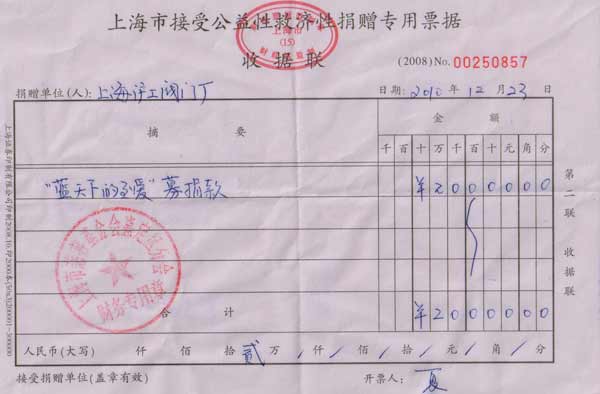 上海市接受公益性救济性捐赠专用票据
上海市
(15)
收据联
(2008)No. 00250857
捐赠单位(人): 上海沪工阀门厂
日期: 2010 年 12 月 23 日
摘 要
金 额
千 百 十 万 千 百 十 元 角 分
"蓝天下的至爱"募捐款
¥ 2 0 0 0 0 0 0
财务专用章
合 计
¥ 2 0 0 0 0 0 0
人民币(大写) 仟 佰 拾 贰 万 / 仟 / 佰 / 拾 / 元 / 角 / 分
接受捐赠单位(盖章有效)
开票人: 夏
第二联 收据联